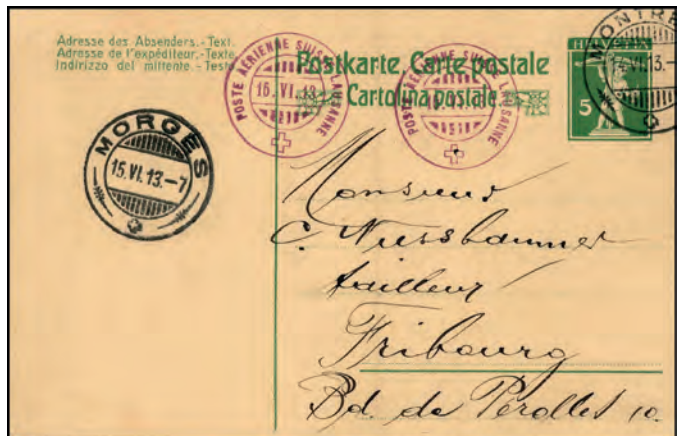 Adresse des Absenders.-Text.
Adresse de l'expéditeur.-Texte.
Indirizzo del mittente.-Testo
Postkarte Carte postale
Cartolina postale
POSTE AÉRIENNE SUISSE LAUSANNE
15.VI.13
POSTE AÉRIENNE SUISSE LAUSANNE
HELVETIA
5
MONTRE
VI.13.-
MORGES
15.VI.13.-7
Monsieur
C. Nussbaumer
tailleur
Fribourg
Bd. de Pérolles 10.